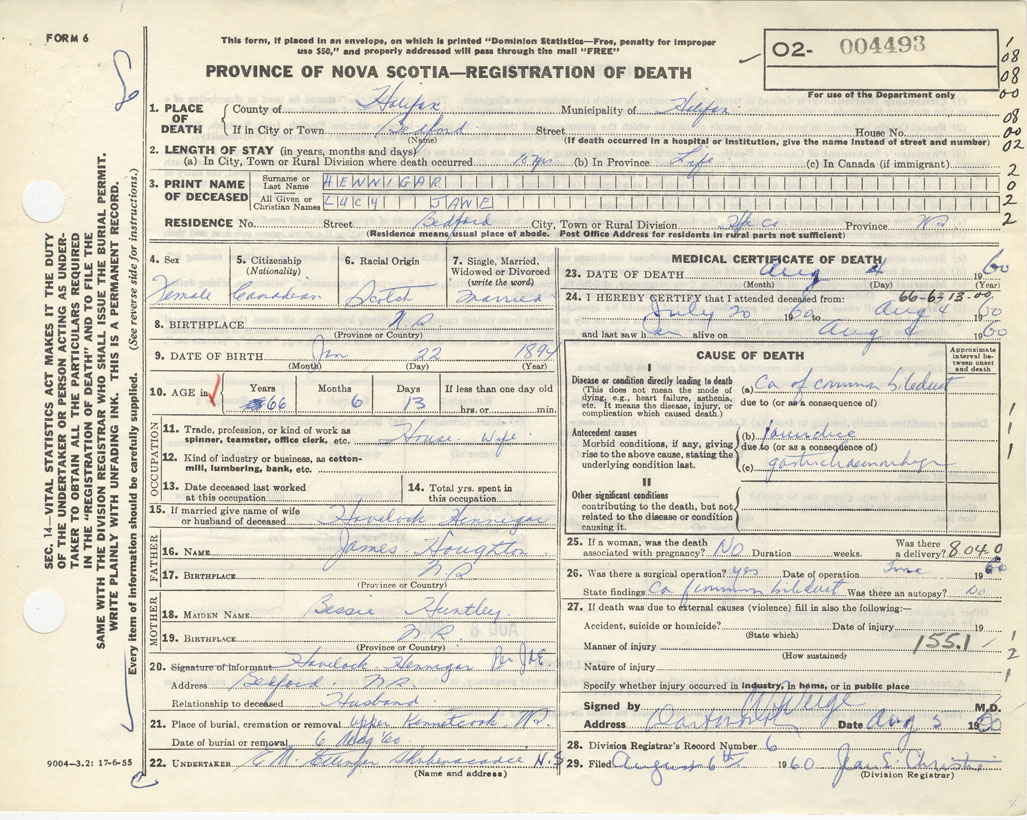 FORM 6
This form, if placed in an envelope, on which is printed "Dominion Statistics—Free, penalty for improper
use $50," and properly addressed will pass through the mail "FREE"
PROVINCE OF NOVA SCOTIA—REGISTRATION OF DEATH
02- 004493
For use of the Department only
1. PLACE OF DEATH
County of Halifax Municipality of Halifax
If in City or Town Bedford Street House No.
(Name) (If death occurred in a hospital or institution, give the name instead of street and number)
2. LENGTH OF STAY (in years, months and days)
(a) In City, Town or Rural Division where death occurred 10 yrs (b) In Province Life (c) In Canada (if immigrant)
3. PRINT NAME OF DECEASED
Surname or Last Name HENNIGAR
All Given or Christian Names LUCY JANE
RESIDENCE No. Street Bedford City, Town or Rural Division Hfx Co Province N.S.
(Residence means usual place of abode. Post Office Address for residents in rural parts not sufficient)
4. Sex 5. Citizenship (Nationality) 6. Racial Origin 7. Single, Married, Widowed or Divorced (write the word)
Female Canadian Scotch Married
8. BIRTHPLACE N.S.
(Province or Country)
9. DATE OF BIRTH Jan 22 1894
(Month) (Day) (Year)
10. AGE in Years Months Days If less than one day old
66 6 13 hrs. or min.
OCCUPATION
11. Trade, profession, or kind of work as spinner, teamster, office clerk, etc. House wife
12. Kind of industry or business, as cotton-mill, lumbering, bank, etc.
13. Date deceased last worked at this occupation
14. Total yrs. spent in this occupation
15. If married give name of wife or husband of deceased Havelock Hennigar
FATHER
16. NAME James Houghton
17. BIRTHPLACE N.S.
(Province or Country)
MOTHER
18. MAIDEN NAME Bessie Huntley
19. BIRTHPLACE N.S.
(Province or Country)
20. Signature of informant Havelock Hennigar Per
Address Bedford N.S.
Relationship to deceased Husband
21. Place of burial, cremation or removal Upper Kennetcook N.S.
Date of burial or removal 6 Aug 60
22. UNDERTAKER E.M. Ettinger Shubenacadie N.S
(Name and address)
MEDICAL CERTIFICATE OF DEATH
23. DATE OF DEATH Aug 4 1960
(Month) (Day) (Year)
24. I HEREBY CERTIFY that I attended deceased from: 66-6-13-00
July 20 1960 to Aug 4 1960
and last saw her alive on Aug 4 1960
CAUSE OF DEATH
Approximate interval between onset and death
I
Disease or condition directly leading to death (a) Ca of common bileduct
(This does not mean the mode of dying, e.g., heart failure, asthenia, etc. It means the disease, injury, or complication which caused death.)
due to (or as a consequence of)
Antecedent causes (b) Jaundice
Morbid conditions, if any, giving rise to the above cause, stating the underlying condition last.
due to (or as a consequence of)
(c) gastric haemorrhage
II
Other significant conditions contributing to the death, but not related to the disease or condition causing it.
25. If a woman, was the death associated with pregnancy? No Duration weeks. Was there a delivery? 8040
26. Was there a surgical operation? yes Date of operation June 1960
State findings Ca of common bileduct Was there an autopsy? no
27. If death was due to external causes (violence) fill in also the following:—
Accident, suicide or homicide? Date of injury 19
(State which)
Manner of injury 155.1
(How sustained)
Nature of injury
Specify whether injury occurred in industry, in home, or in public place
Signed by M.D.
Address Dartmouth Date Aug 5 1960
28. Division Registrar's Record Number 6
29. Filed August 6th 1960 Jean S. Christie
(Division Registrar)
SEC. 14—VITAL STATISTICS ACT MAKES IT THE DUTY
OF THE UNDERTAKER OR PERSON ACTING AS UNDER-
TAKER TO OBTAIN ALL THE PARTICULARS REQUIRED
IN THE "REGISTRATION OF DEATH" AND TO FILE THE
SAME WITH THE DIVISION REGISTRAR WHO SHALL ISSUE THE BURIAL PERMIT.
WRITE PLAINLY WITH UNFADING INK. THIS IS A PERMANENT RECORD.
Every item of information should be carefully supplied. (See reverse side for instructions.)
9004-3.2: 17-6-55